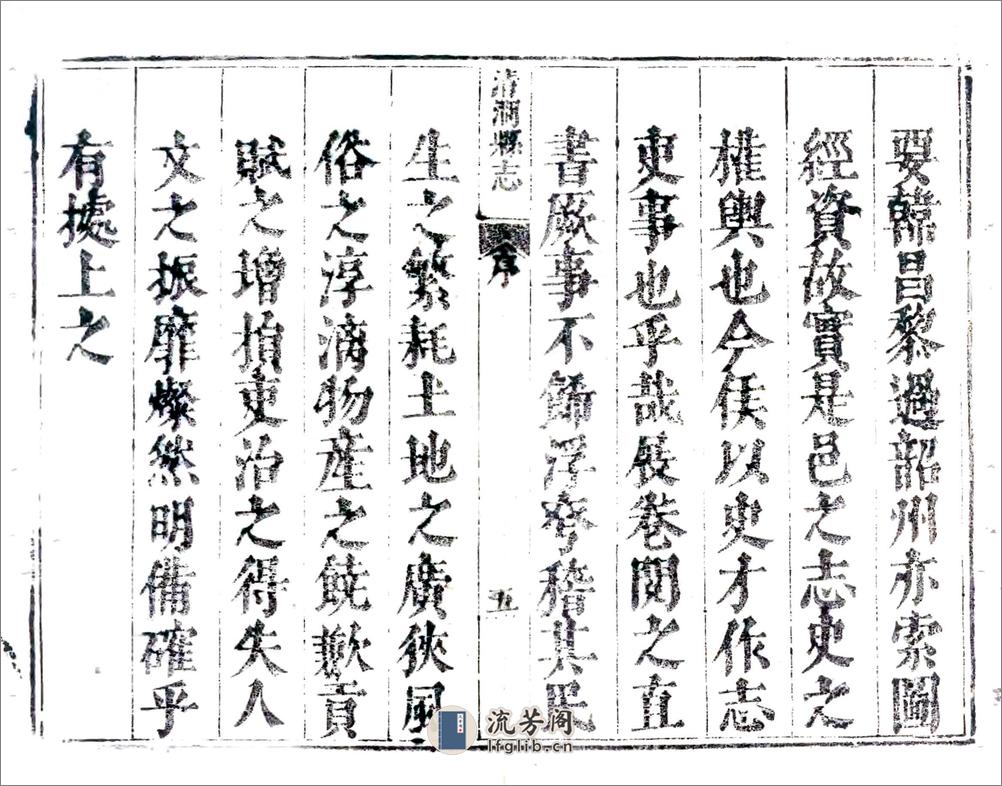 要韓昌黎過韶州亦索圖
經資故實是邑之志史之
權輿也今侯以吏才作志
吏事也乎哉展卷閱之直
書厥事不飾浮夸稽其民
清澗縣志
序
五
生之繁耗土地之廣狹風
俗之淳漓物產之饒歉貢
賦之增損吏治之得失人
文之振靡燦然明備確乎
有據上之
流芳阁
lfglib.cn